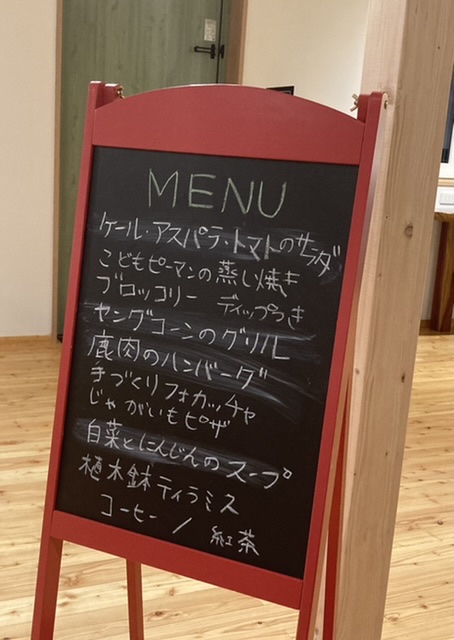 MENU
ケール・アスパラ・トマトのサラダ
こどもピーマンの蒸し焼き
ブロッコリー ディップつき
ヤングコーンのグリル
鹿肉のハンバーグ
手づくりフォカッチャ
じゃがいもピザ
白菜とにんじんのスープ
植木鉢ティラミス
コーヒー / 紅茶